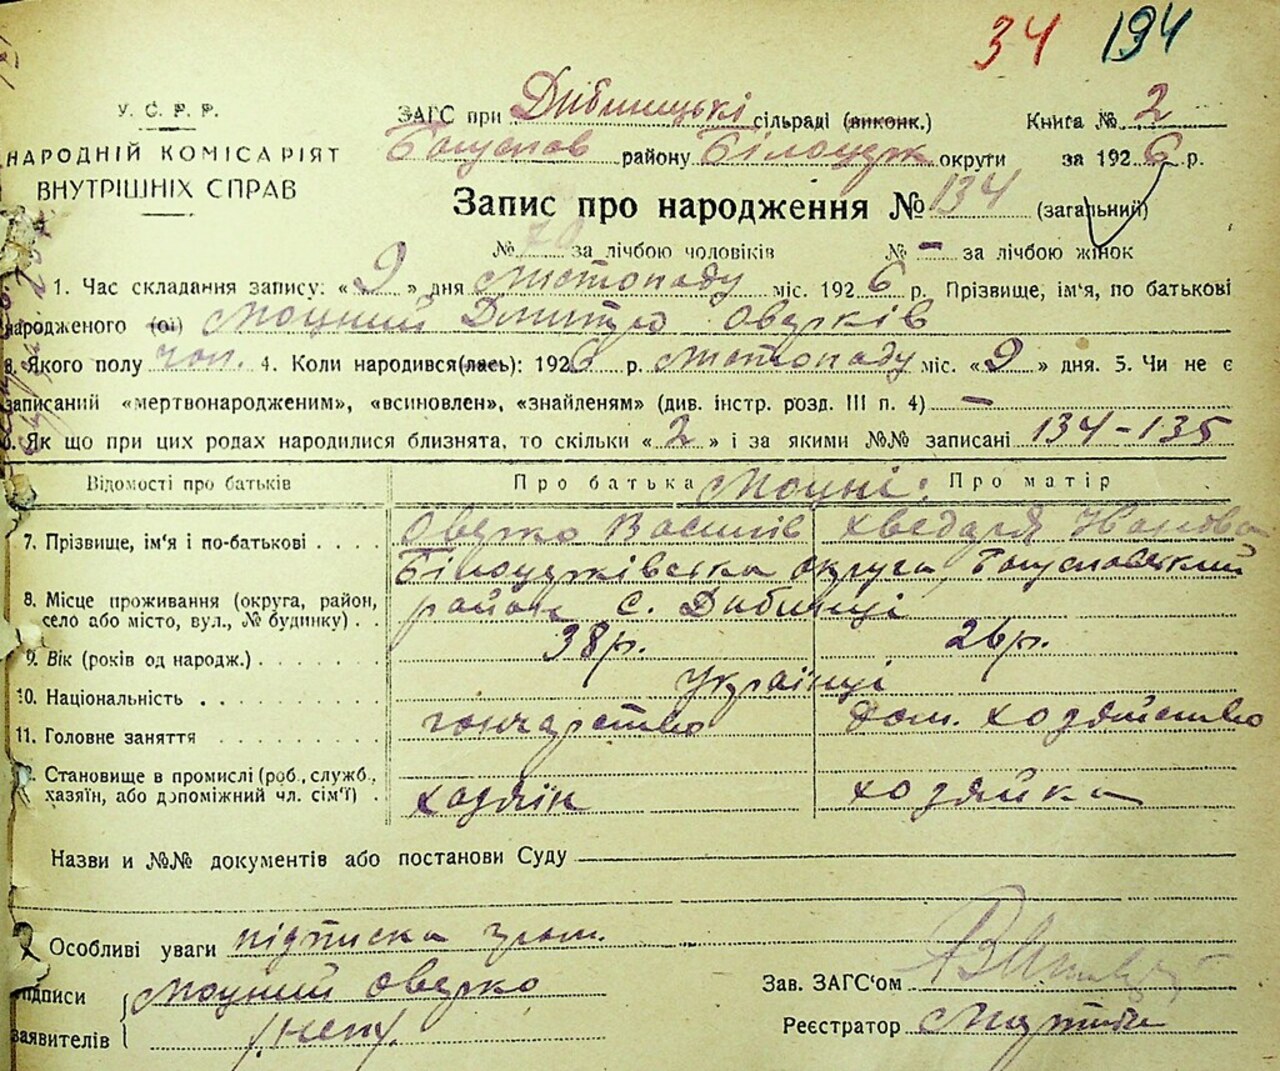 34 194
У. С. Р. Р.
НАРОДНІЙ КОМІСАРІЯТ
ВНУТРІШНІХ СПРАВ
ЗАГС при Дибницькі сільраді (виконк.) Книга № 2
Богуслав району Білоцерк округи за 1926 р.
Запис про народження № 134 (загальний)
№ 70 за лічбою чоловіків № – за лічбою жінок
1. Час складання запису: « 9 » дня листопаду міс. 1926 р. Прізвище, ім'я, по батькові
народженого (ої) Моцний Дмитро Оверків
3. Якого полу чол. 4. Коли народився(лась): 1926 р. листопаду міс. « 9 » дня. 5. Чи не є
записаний «мертвонародженим», «всиновлен», «знайденям» (див. інстр. розд. III п. 4) –
6. Як що при цих родах народилися близнята, то скільки « 2 » і за якими №№ записані 134-135
Відомості про батьків Про батька Моцні: Про матір
7. Прізвище, ім'я і по-батькові . . . . Оверко Василів Хведаря Іванова
Білоцерківська округа, Богуславський
8. Місце проживання (округа, район, район с. Дибинці
село або місто, вул., № будинку) . .
9. Вік (років од народж.) 38р. 26р.
10. Національність Українці
11. Головне заняття гончарство дом. хозяйство
Становище в промислі (роб., служб.,
хазяїн, або допоміжний чл. сім'ї) . хозяїн хозяйка
Назви и №№ документів або постанови Суду
Особливі уваги підписка гром.
Підписи Моцний Оверко Зав. ЗАГС'ом
заявителів /непт/. Реєстратор